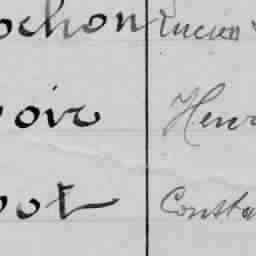 ochon Lucien
voir Henr
pot Consta